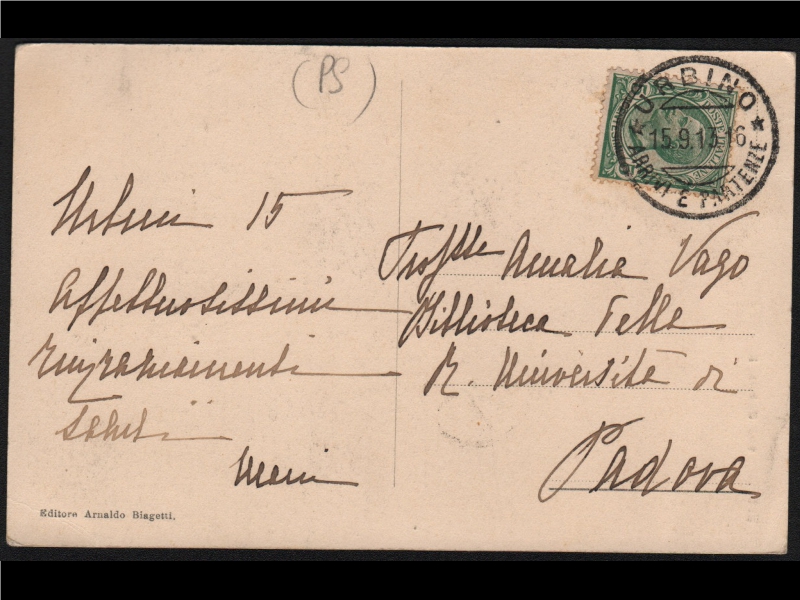 (PS)
URBINO
15.9.13-16
ARRIVI E PARTENZE
Urbino 15
Affettuosissimi
ringraziamenti
saluti
Proff.sse Amalia Vago
Biblioteca Della
R. Università di
Padova
Editore Arnaldo Biagetti.